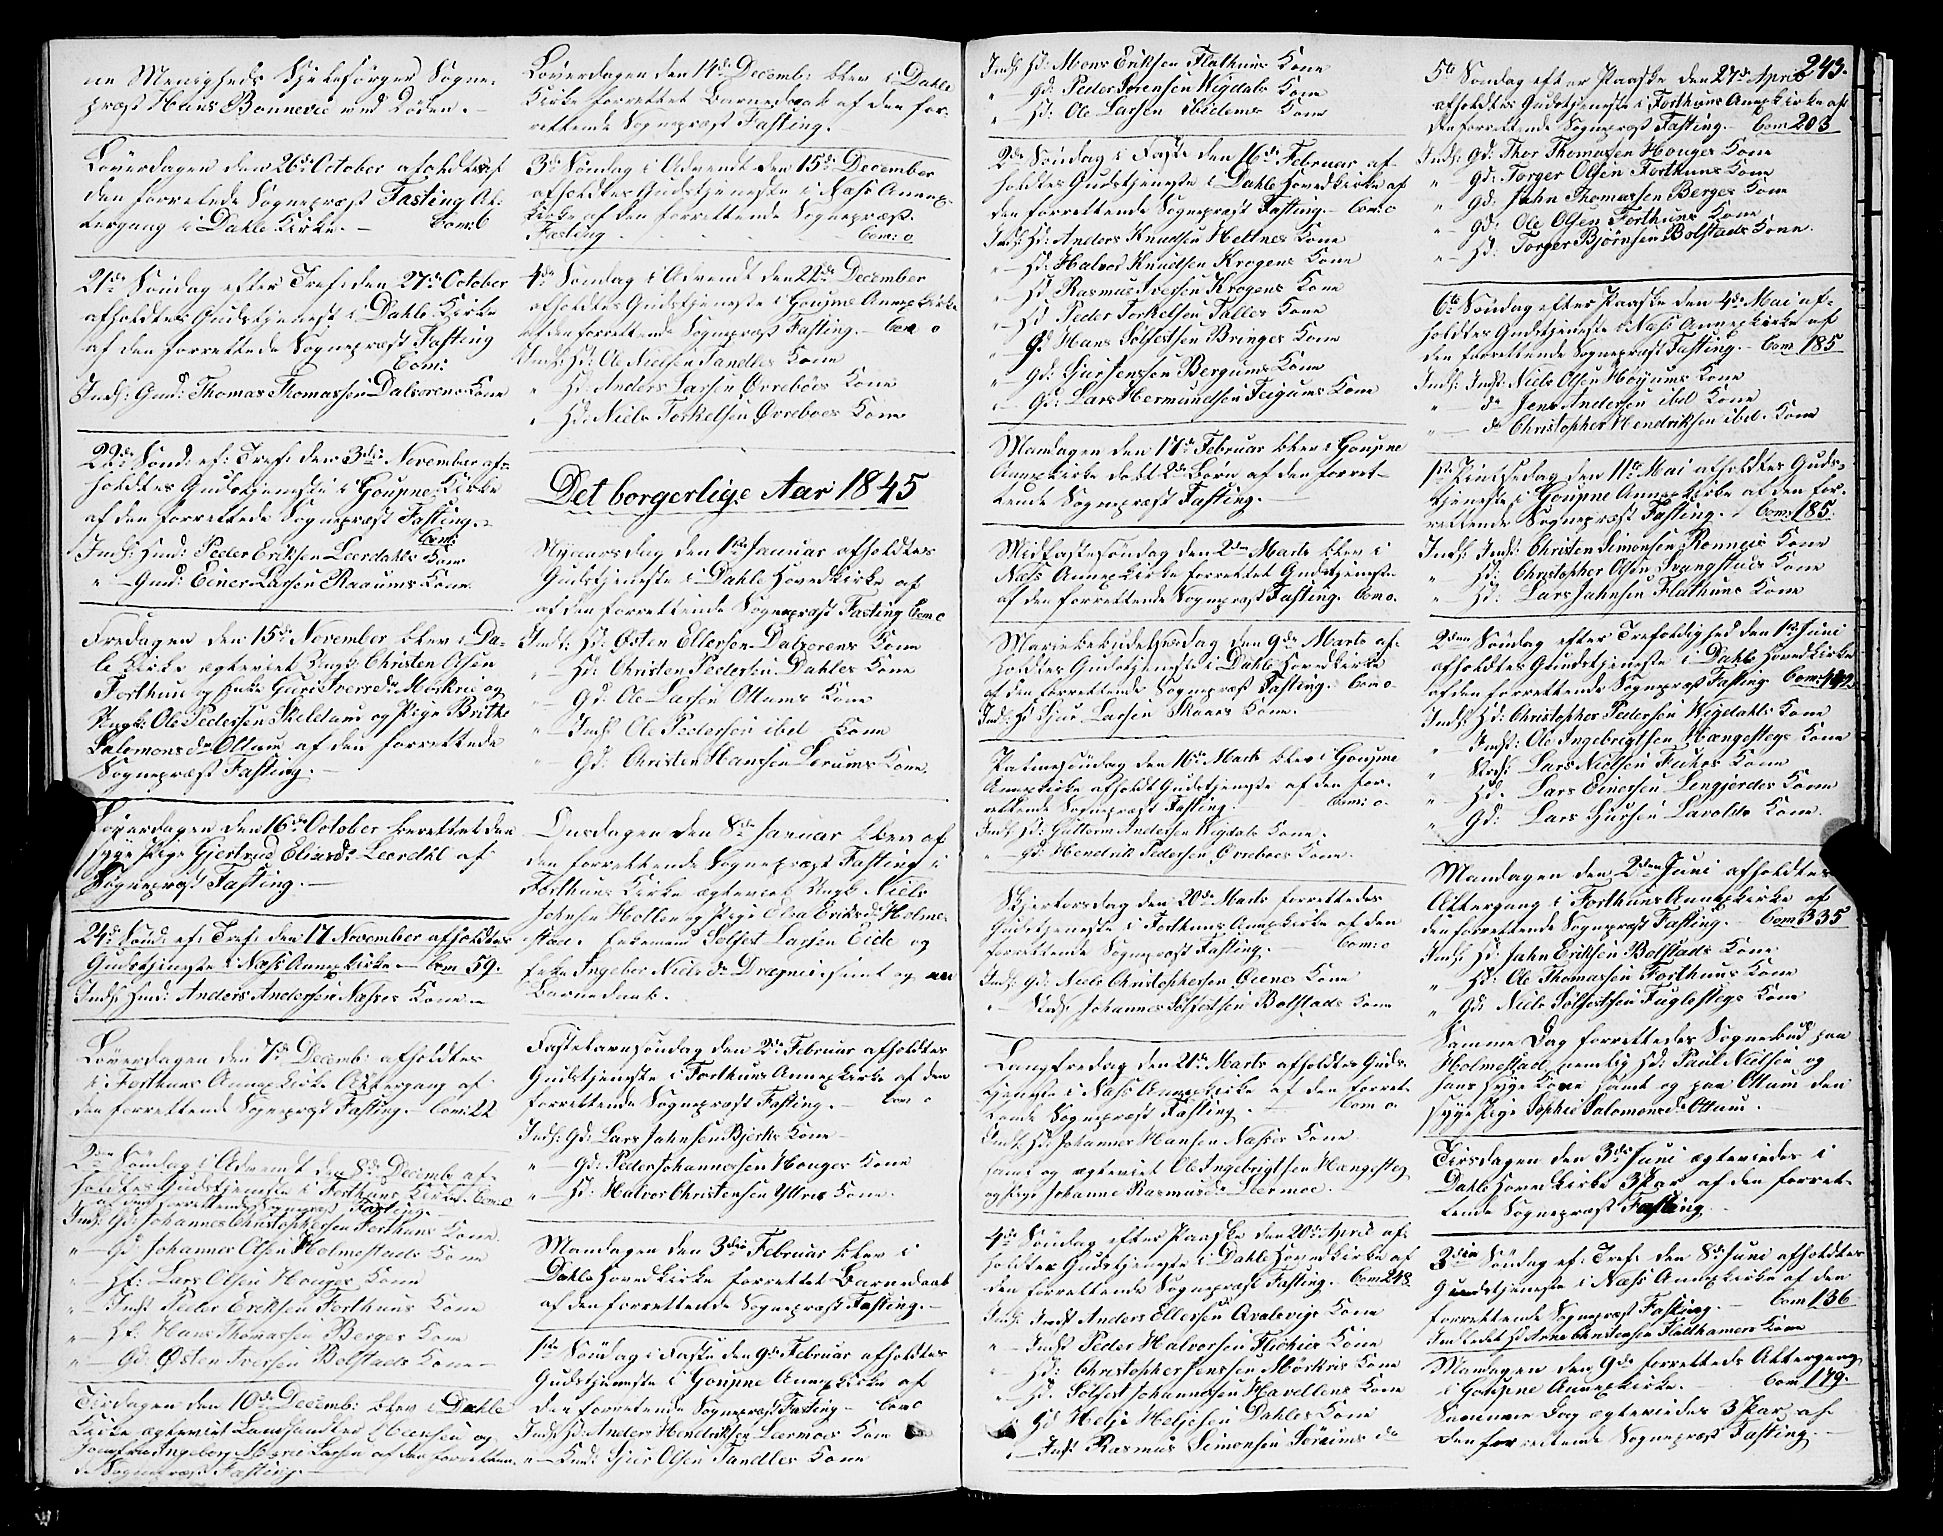 ne Menigheds Sjelesørger Sogne-
præst Hans Bonnevie ved Døden.
Løverdagen den 26de October afholdtes af
den forrettede Sognepræst Fasting Al-
tergang i Dahle Kirke. — Com: 6
21de Søndag efter Tref: den 27de October
afholdtes Gudstjeneste i Dahle Kirke
af den forrettede Sognepræst Fasting
Com:
Indl: Gmd: Thomas Thomassen Dalsørens Kone
22de Sønd: ef: Tref: den 3die November af-
holdtes Gudstjeneste i Goupne Kirke
af den forrettede Sognepræst Fasting. —
Com:
Indl: Hmd: Peder Eriksen Leerdahls Kone
" — Gmd: Einer Larsen Raaums Kone
Fredagen den 15de November blev i Da-
le Kirke egteviet Ungk: Christen Olsen
Forthun og Enke Guri Iversdr Mørkrie og
Ungk: Ole Pedersen og Pige Brithe
Salomonsdr Ottum af den forrettede
Sognepræst Fasting. —
Løverdagen den 16de October berettet den
syge Pige Gjertrud Eliasdr Leerdhl af
Sognepræst Fasting. —
24de Sønd: ef: Tref: den 17 November afholdtes
Gudstjeneste i Næss Annexkirke — Com 59.
Indl: Hmd: Anders Andersen Næsses Kone —
Løverdagen den 7de Decemb: afholdtes
i Forthuns Annexkirke Altergang af
den forrettende Sognepræst Fasting. — Com: 22
2den Søndag i Advent den 8de Decemb: af-
holdtes Gudstjeneste i Forthuns Kirke Com: 0
af den forrettende Sognepræst Fasting. —
Indl: Gd: Johannes Christophersen Forthuns Kone
" — Gd: Johannes Olsen Holmestads Kone
" — Hd: Lars Olsen Houges Kone
" — Indst: Peder Eriksen Forthuns Kone
" — Hd: Hans Thomassen Berges Kone
" — Gd: Østen Iversen Bolstads Kone —
Tirsdagen den 10de Decemb: blev i Dahle
Kirke egteviet Landhandler Hansen og
Jomfru Ingeborg Marie Larsen af den forretten-
de Sognepræst Fasting. —
Løverdagen den 14de Decemb: blev i Dahle
Kirke forrettet Barnedaab af den for-
rettende Sognepræst Fasting.
3de Søndag i Advendt den 15de December
afholdtes Gudstjeneste i Næss Annex-
kirke af den forrettende Sognepræst
Fasting — Com: 0
4de Søndag i Advendt den 22de December
afholdtes Gudstjeneste i Goupne Annexkirke
af den forrettende Sognepræst Fasting. — Com 0
Indl: Hd: Ole Nielsen Sandles Kone
" Hd: Anders Larsen Øvrebøes Kone
" Hd: Niels Torkelsen Øvreboes Kone
Det borgerlige Aar 1845
Nyaarsdag den 1ste Januar afholdtes
Gudstjeneste i Dahle Hovedkirke af
af den forrettende Sognepræst Fasting Com 0
Indl: Hd: Østen Ellersen Dalsørens Kone
" — Hd: Christen Pedersen Dahles Kone
" — Gd: Ole Larsen Ottums Kone
" Indst: Ole Pedersen ibid Kone
" Gd: Christen Hansen Lerums Kone.
Onsdagen den 8de Januar blev af
den forrettende Sognepræst Fasting i
Forthuns Kirke egteviet Ungk: Niels
Johnsen Holten og Pige Elsa Eriksdr Holme-
stad. Enkemand Solfest Larsen Eide og
Enke Ingeber Nielsdr Drægnie. samt og en
Barnedaab.
Fastelavnssøndag den 2de Februar afholdtes
Gudstjeneste i Forthuns Annexkirke af den
forrettende Sognepræst Fasting. — Com 0
Indl: Gd: Lars Johnsen Bjerks Kone —
" — Gd: Peder Johannessen Houges Kone
" — Hd: Halvor Christensen Yttris Kone.
Mandagen den 3die Februar blev i
Dahle Hovedkirke forrettet Barnedaab
af den forrettende Sognepræst Fasting. —
1ste Søndag i Faste den 9de Februar afholdtes
Gudstjeneste i Goupne Annexkirke af
den forrettende Sognepræst Fasting — Com 0
Indl: Hd: Anders Hendriksen Leermoes Kone
" — Hmd: Sjur Olsen Sandles Kone
Indl: Hd: Mons Eriksen Flathuns Kone
" Gd: Peder Sørensen Wigdals Kone
" Hd: Ole Larsen ibidems Kone
2de Søndag i Faste den 16de Februar af-
holdtes Gudstjeneste i Dahle Hovedkirke af
den forrettende Sognepræst Fasting. — Com: 0
Indl: Hd: Anders Knudsen Heltnes Kone
" — Hd: Halvor Knudsen Krogens Kone
" — Hd Rasmus Iversen Krogens Kone
" — Hd Peder Torkelsen Talles Kone
" — Gd Hans Solfestsen Bringes Kone
" — Gd: Sjur Jenssen Bergums Kone
" — Gd: Lars Hermundsen Feigums Kone
Mandagen den 17de Februar blev i Goupne
Annexkirke døbt 2de Børn af den forret-
tende Sognepræst Fasting. —
Midfastesøndag den 2den Marts blev i
Næss Annexkirke forrettet Gudstjeneste
af den forrettende Sognepræst Fasting. Com 0.
Mariebebudelsesdag den 9de Marts af-
holdtes Gudstjeneste i Dahle Hovedkirke
af den forrettende Sognepræst Fasting. — Com 0 —
Indl: Hd Sjur Larsen Moens Kone. —
Palmesøndag den 16de Marts blev i Goupne
Annexkirke afholdt Gudstjeneste af den for-
rettende Sognepræst Fasting. — Com: 0.
Indl: Hd: Guttorm Andersen Wigdals Kone.
" — Gd: Hendrik Pedersen Øvreboes Kone.
Skjertorsdag den 20de Marts forrettedes
Gudstjeneste i Forthuns Annexkirke af den
forrettende Sognepræst Fasting. — Com: 0
Indl: Gd: Niels Christophersen Kone
" — Johannes Solfestsen Bolstads Kone
Langfredag den 21de Marts afholdtes Guds-
tjeneste i Næss Annexkirke af den forret-
tende Sognepræst Fasting. — Com 0.
Indl: Hd: Johannes Hansen Næsses Kone.
samt og egteviet Ole Ingebrigtsen Hængesteg
og Pige Johanne Rasmusdr Leermoe. —
4de Søndag efter Paaske den 20de April af-
holdtes Gudstjeneste i Dahle Hovedkirke af
den forrettende Sognepræst Fasting. Com 248.
Indl: Indst Anders Ellersen Qvalevigs Kone
" — Indst Peder Halvorsen Flickies Kone
" — Hd: Christopher Jenssen Mørkris Kone
" — Hd: Solfest Johannesen Havellens Kone
" — Gd Helje Heljesen Dahles Kone
" — Indst Rasmus Simonsen Søreims do
243.
5te Søndag efter Paaske den 27de April
afholdtes Gudstjeneste i Forthuns Annexkirke af
den forrettende Sognepræst Fasting. — Com 203
Indl: Gd: Thor Thomasen Houges Kone
" — Gd: Torger Olsen Forthuns Kone
" Gd: John Thomassen Berges Kone
" — Gd: Ole Olsen Forthuns Kone
" — Hd: Torger Bjørnsen Bolstads Kone.
6te Søndag efter Paaske den 4de Mai af-
holdtes Gudstjeneste i Næss Annexkirke af
den forrettende Sognepræst Fasting. — Com 185
Indl: Indst: Niels Olsen Høyums Kone
" do Jens Andersen ibid Kone
" — do Christopher Hendriksen ibid. Kone
1ste Pintsedag den 11te Mai afholdtes Guds-
tjeneste i Goupne Annexkirke af den for-
rettende Sognepræst Fasting. — Com: 185.
Indl: Indst: Christen Simonsen Rønneis Kone
" Hd: Christopher Olsen Kone
" Hd: Lars Johnsen Flathuns Kone
2den Søndag efter Trefoldighed den 1ste Juni
afholdtes Gudstjeneste i Dahle Hovedkirke
af den forrettende Sognepræst Fasting Com:
Indl: Hd: Christopher Pedersen Wigdahls Kone
" Indst: Ole Ingebrigtsen Hængestegs Kone
" Lars Nielsen Kone
" Hd: Lars Einersen Lingjerdes Kone
" Gd: Lars Sjursen Kone.
Mandagen den 2den Juni afholdtes
Altergang i Forthuns Annexkirke af
den forrettende Sognepræst Fasting. — Com 335
Indl: Hd: John Eriksen Bolstads Kone
" Hd: Ole Thomassen Forthuns Kone
" Gd: Niels Solfestsen Fuglestegs Kone
Samme Dag forrettedes Sognebud paa
Holmestad nemlig Hd: Paul Nielsen og
hans syge Kone samt og paa Ottum den
syge Pige Sophie Salomonsdr Ottum.
Tirsdagen den 3de Juni egteviedes i
Dahle Hoved Kirke 3 Par af den forret-
tende Sognepræst Fasting
3die Søndag ef: Tref: den 8de Juni afholdtes
Gudstjeneste i Næss Annexkirke af den
forrettende Sognepræst Fasting. — Com 136
Indledet Hd Arne Christensen Flatthamers Kone
Mandagen den 9de forrettedes Altergang
i Goupne Annexkirke. — Com 179.
Samme Dag egteviedes 3 Par af
den forrettende Sognepræst Fasting. —